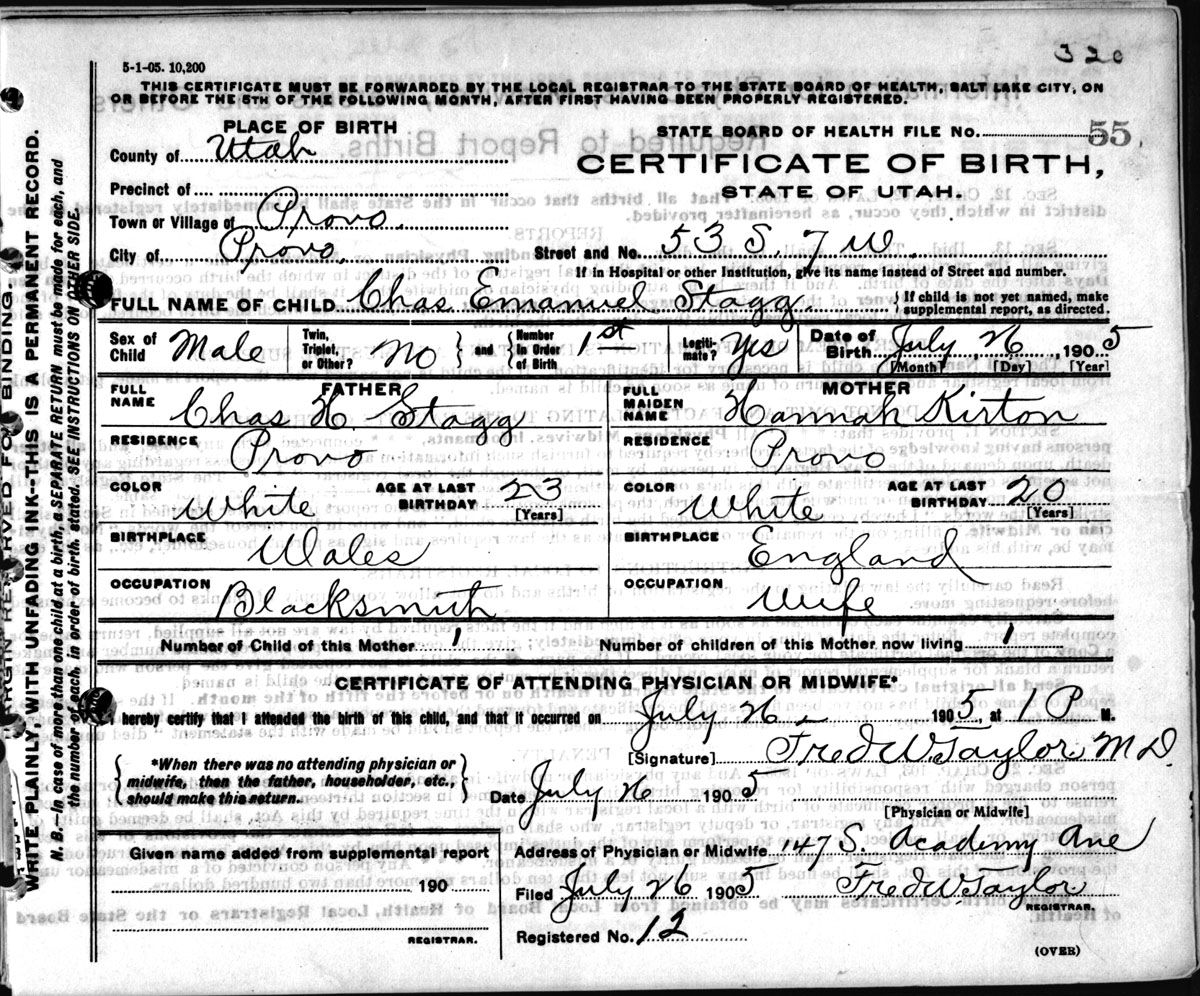 320
5-1-05. 10,200
THIS CERTIFICATE MUST BE FORWARDED BY THE LOCAL REGISTRAR TO THE STATE BOARD OF HEALTH, SALT LAKE CITY, ON
OR BEFORE THE 5TH OF THE FOLLOWING MONTH, AFTER FIRST HAVING BEEN PROPERLY REGISTERED.
PLACE OF BIRTH
STATE BOARD OF HEALTH FILE No. 55
County of Utah
CERTIFICATE OF BIRTH,
STATE OF UTAH.
Precinct of
Town or Village of Provo
City of Provo. Street and No. 53 S. 7 W
If in Hospital or other Institution, give its name instead of Street and number.
FULL NAME OF CHILD Chas Emanuel Stagg {If child is not yet named, make supplemental report, as directed.
Sex of Child Male Twin, Triplet, or Other? No } and { Number in Order of Birth 1st Legiti-mate? Yes Date of Birth July 26 1905
[Month] [Day] [Year]
FATHER
FULL NAME Chas H. Stagg
MOTHER
FULL MAIDEN NAME Hannah Kirton
RESIDENCE Provo
RESIDENCE Provo
COLOR White AGE AT LAST BIRTHDAY 23 [Years]
COLOR White AGE AT LAST BIRTHDAY 20 [Years]
BIRTHPLACE Wales
BIRTHPLACE England
OCCUPATION Blacksmith
OCCUPATION Wife
Number of Child of this Mother 1 Number of children of this Mother now living 1
CERTIFICATE OF ATTENDING PHYSICIAN OR MIDWIFE*
I hereby certify that I attended the birth of this child, and that it occurred on July 26 1905, at 1 P M.
[Signature] Fred W. Taylor M D.
{*When there was no attending physician or
midwife, then the father, householder, etc.,
should make this return.}
Date July 26 1905
[Physician or Midwife]
Given name added from supplemental report
Address of Physician or Midwife 147 S. Academy Ave
190
Filed July 26 1905 Fred W. Taylor
REGISTRAR.
REGISTRAR.
Registered No. 12
(OVER)
MARGIN RESERVED FOR BINDING.
WRITE PLAINLY, WITH UNFADING INK--THIS IS A PERMANENT RECORD.
N. B. In case of more than one child at a birth, a SEPARATE RETURN must be made for each, and
the number of each, in order of birth, stated. SEE INSTRUCTIONS ON OTHER SIDE.